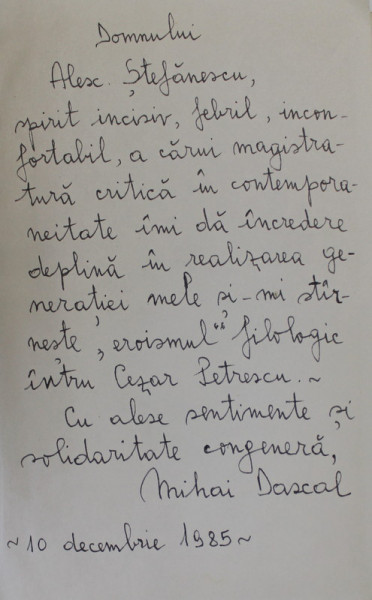 Domnului
Alesc. Ștefănescu,
spirit incisiv, febril, incon-
fortabil, a cărui magistra-
tură critică în contempora-
neitate îmi dă încredere
deplină în realizarea ge-
nerației mele și-mi stîr-
nește „eroismul” filologic
întru Cezar Petrescu. ~
Cu alese sentimente și
solidaritate congeneră,
Mihai Dascal
~ 10 decembrie 1985 ~